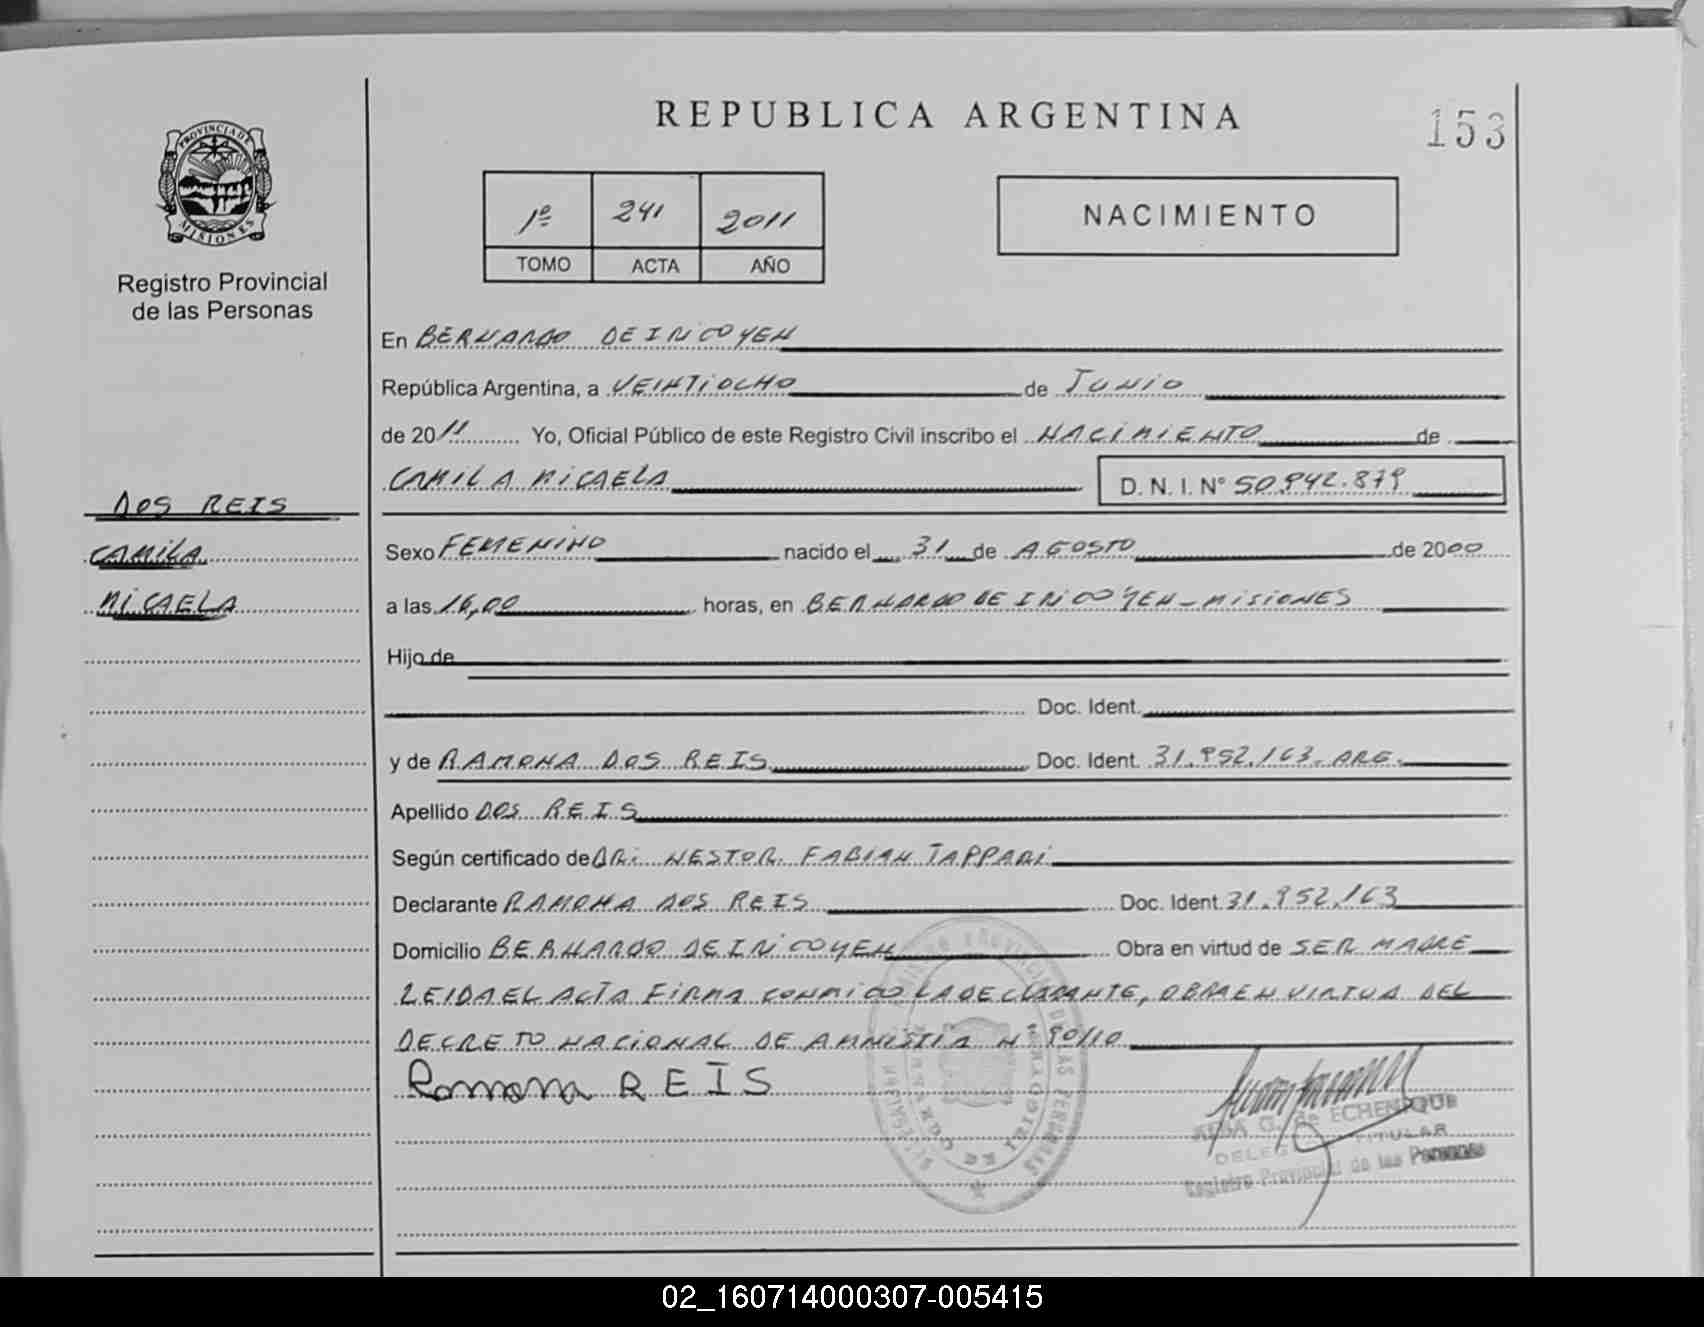 REPUBLICA ARGENTINA
153
PROVINCIA DE
MISIONES
Registro Provincial
de las Personas
1º 241 2011
TOMO ACTA AÑO
NACIMIENTO
En BERNARDO DE IRIGOYEN
República Argentina, a VEINTIOCHO de JUNIO
de 2011 Yo, Oficial Público de este Registro Civil inscribo el NACIMIENTO de
CAMILA MICAELA D. N. I. Nº 50.942.879
DOS REIS
CAMILA
MICAELA
Sexo FEMENINO nacido el 31 de AGOSTO de 2000
a las 16,00 horas, en BERNARDO DE IRIGOYEN - MISIONES
Hijo de
Doc. Ident.
y de RAMONA DOS REIS Doc. Ident. 31.952.163. ARG.
Apellido DOS REIS
Según certificado de DR. NESTOR FABIAN TAPPARI
Declarante RAMONA DOS REIS Doc. Ident 31.952.163
Domicilio BERNARDO DE IRIGOYEN Obra en virtud de SER MADRE
LEIDA EL ACTA FIRMA CONMIGO LA DECLARANTE, OBRA EN VIRTUD DEL
DECRETO NACIONAL DE AMNISTIA Nº 90/10
Ramona REIS
ECHENIQUE
TITULAR
Registro Provincial de las Personas
02_160714000307-005415